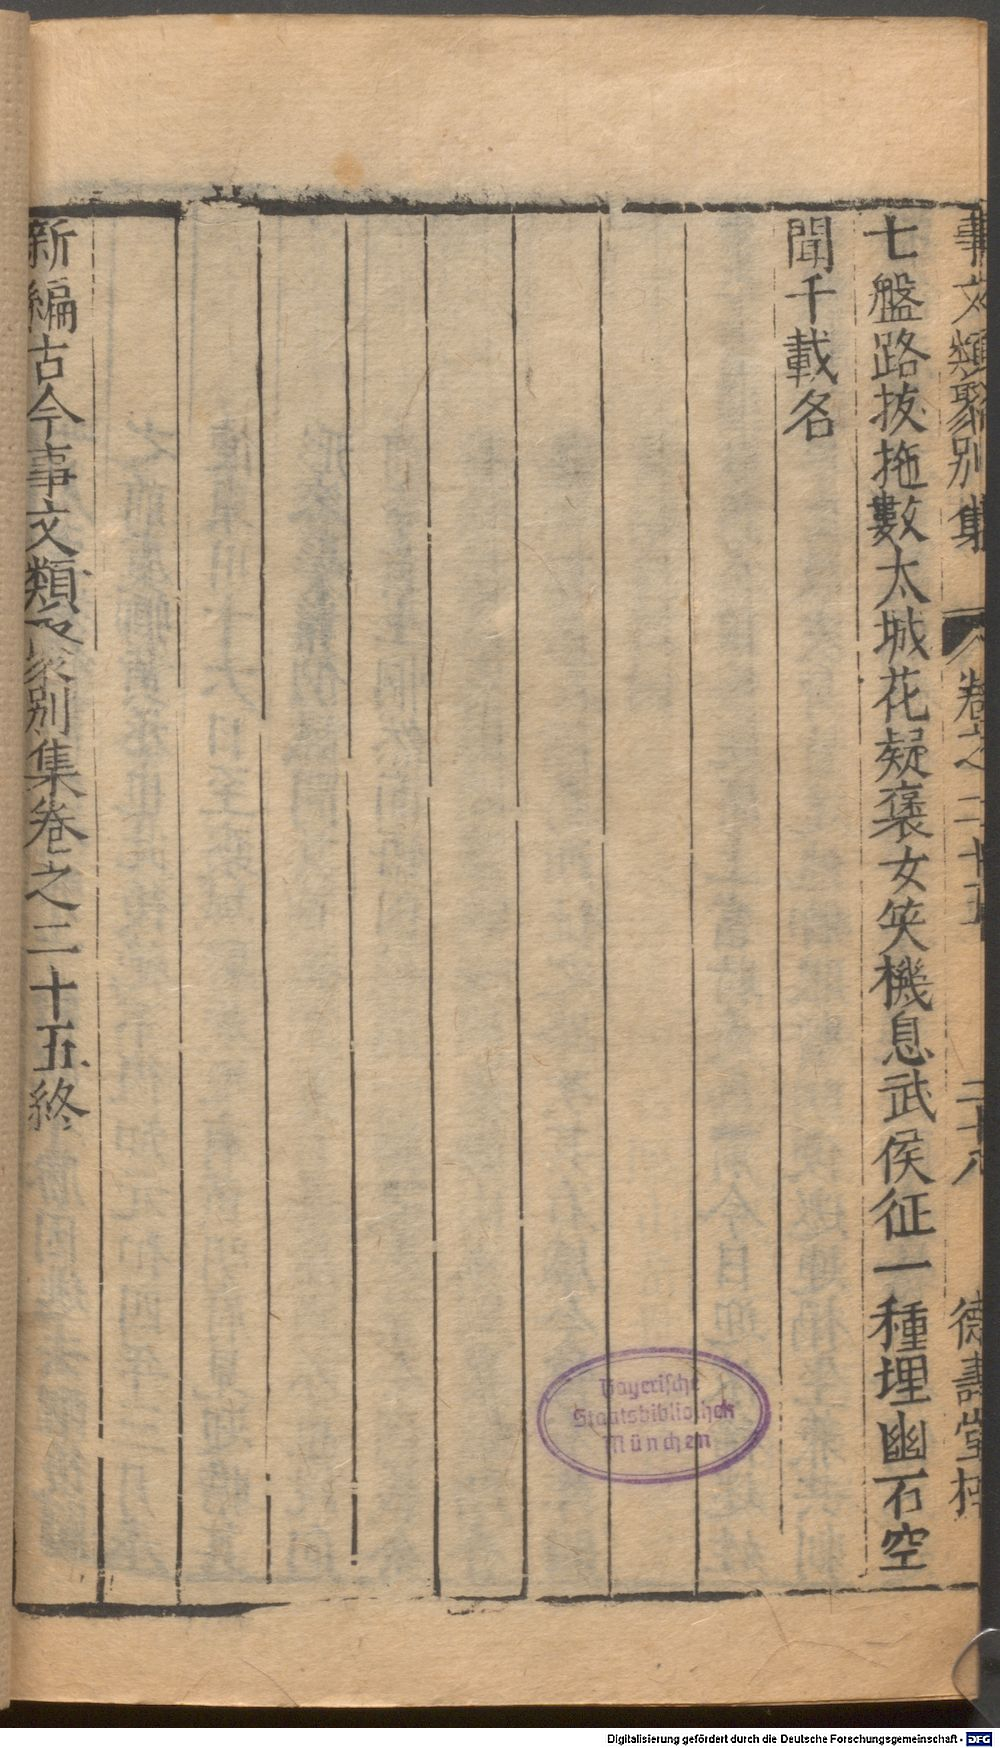 事文類聚別集 卷之二十五 二十八 德壽堂梓
七盤路抜拖數太城花疑褒女笑機息武侯征一種埋幽石空
聞千載名
新編古今事文類聚別集卷之二十五終
Bayerische
Staatsbibliothek
München
Digitalisierung gefördert durch die Deutsche Forschungsgemeinschaft - DFG